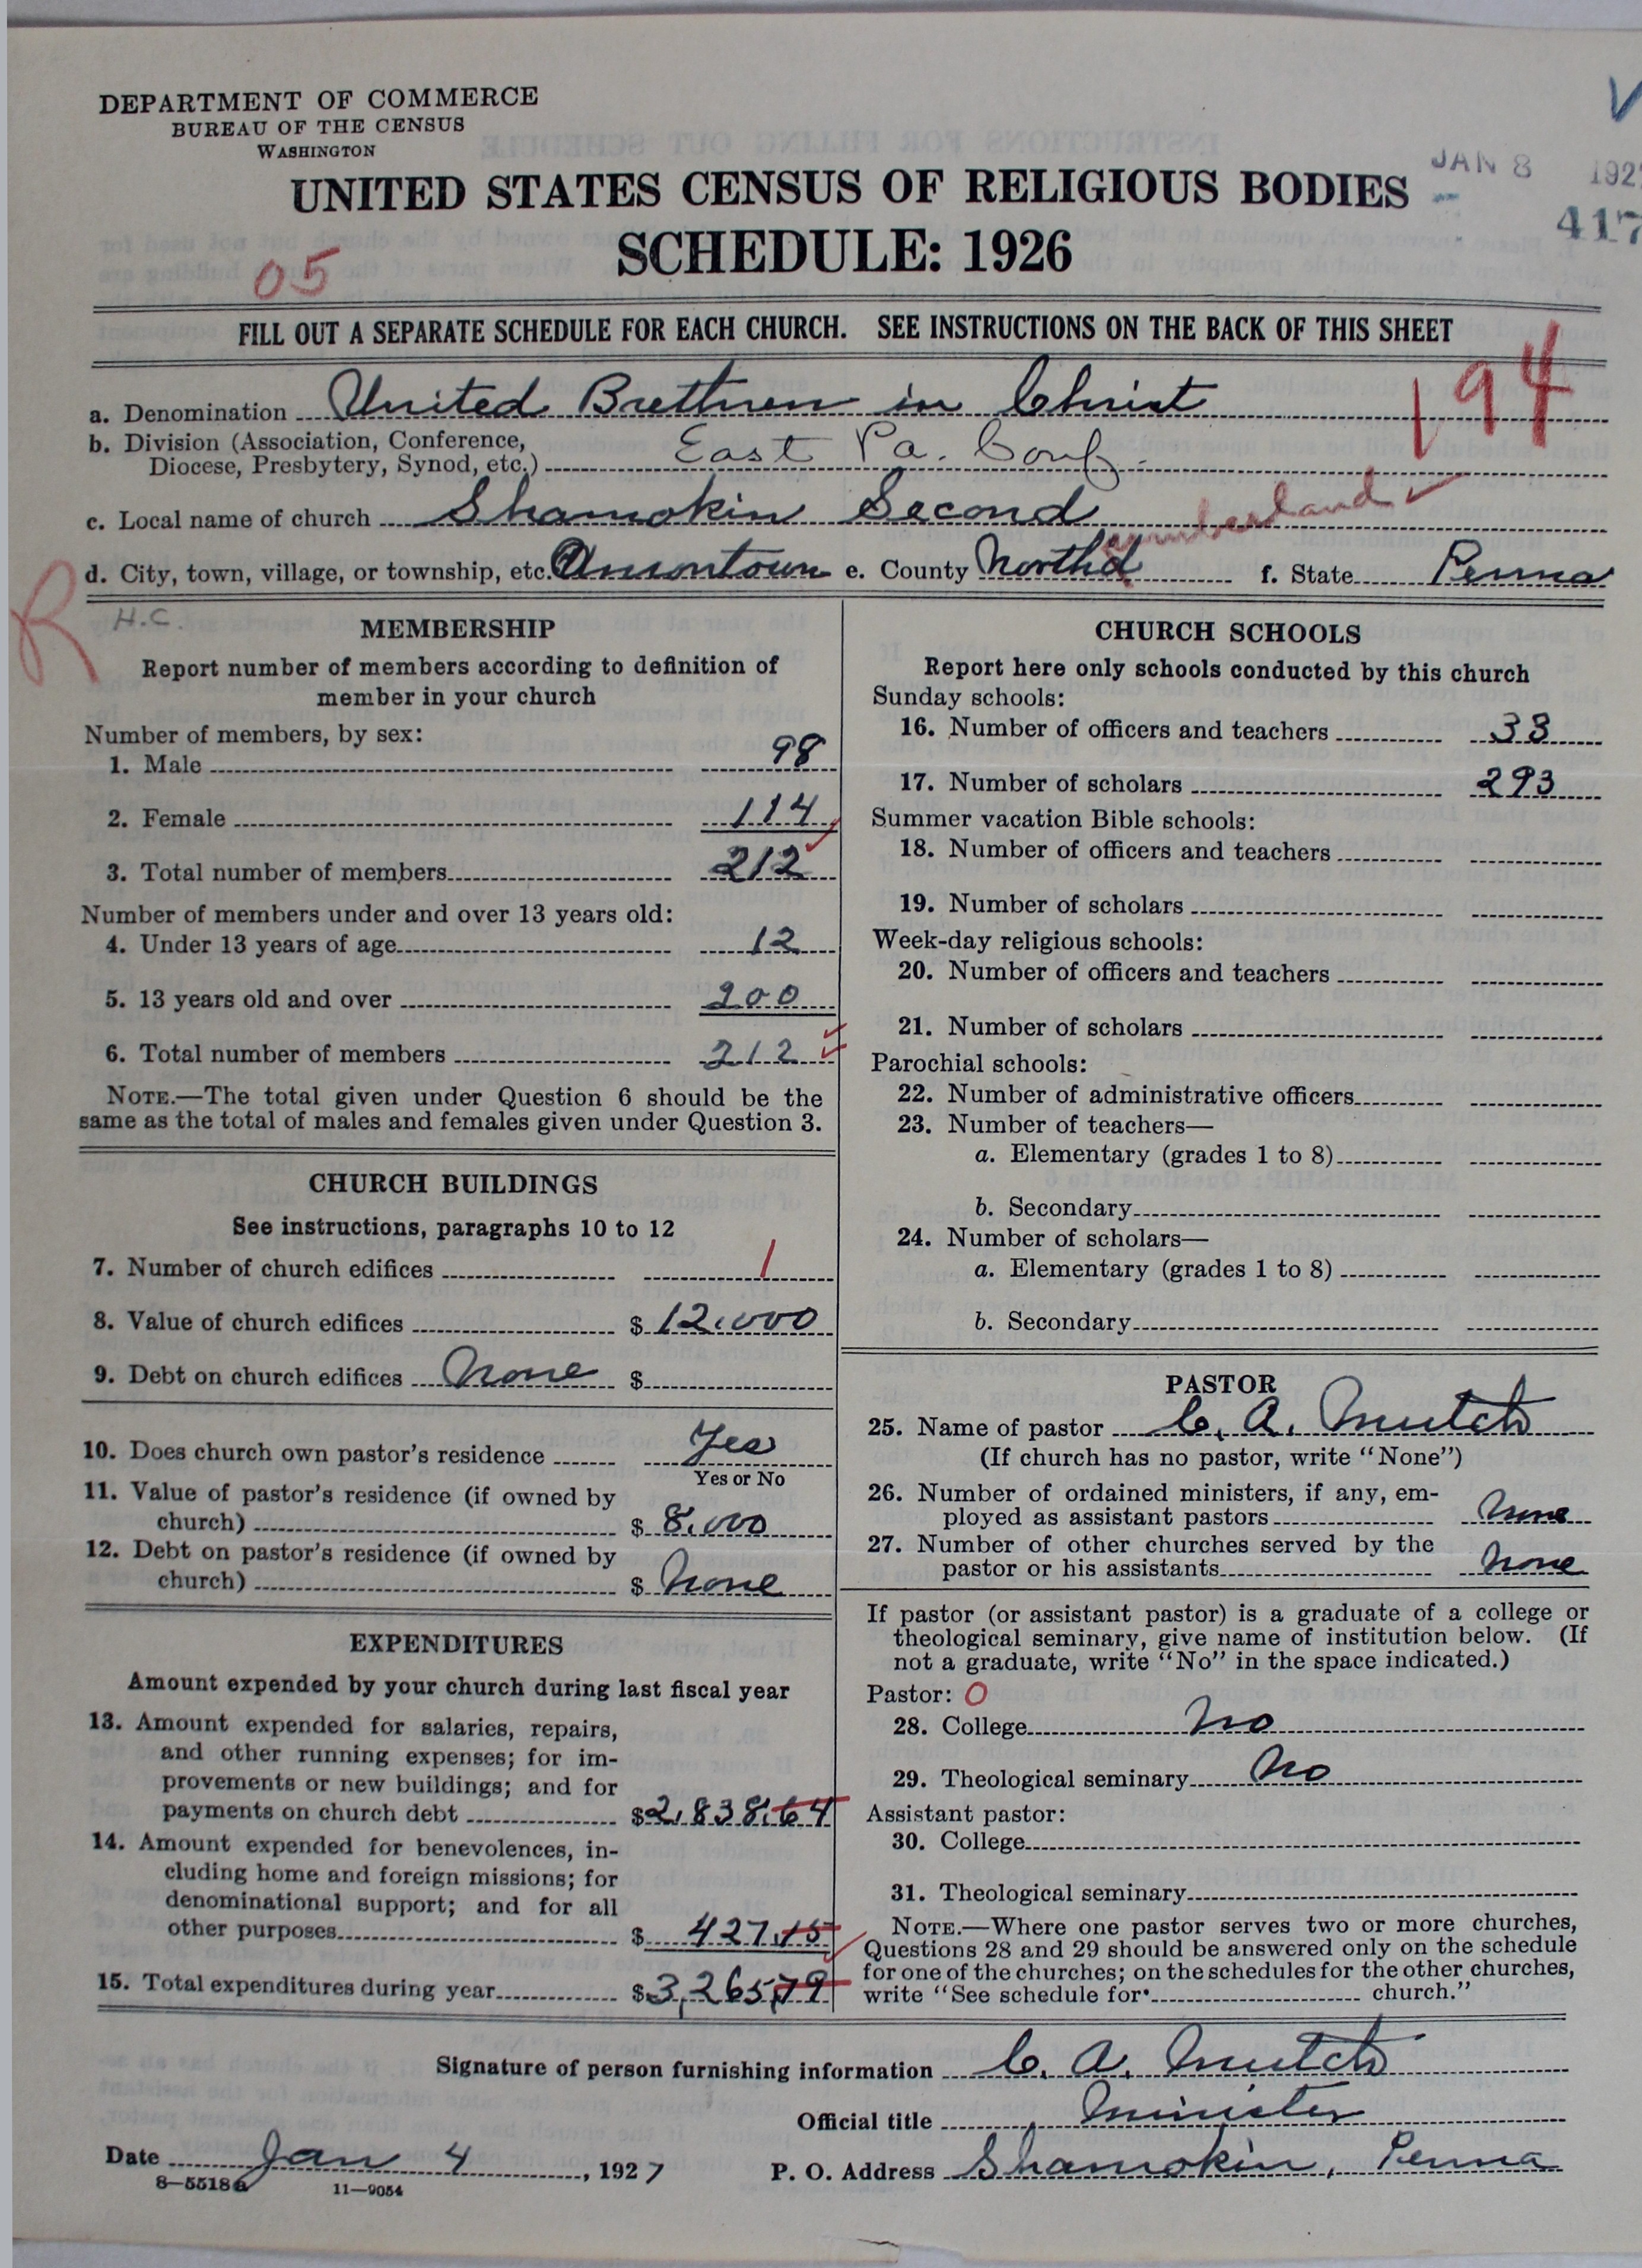 DEPARTMENT OF COMMERCE
BUREAU OF THE CENSUS
WASHINGTON
JAN 8 192
417
UNITED STATES CENSUS OF RELIGIOUS BODIES
SCHEDULE: 1926
05
FILL OUT A SEPARATE SCHEDULE FOR EACH CHURCH. SEE INSTRUCTIONS ON THE BACK OF THIS SHEET
194
a. Denomination United Brethren in Christ
b. Division (Association, Conference,
Diocese, Presbytery, Synod, etc.) East Pa. Conf.
c. Local name of church Shamokin Second
d. City, town, village, or township, etc. e. County North'd umberland f. State Penna
R
H.C.
MEMBERSHIP
Report number of members according to definition of
member in your church
Number of members, by sex:
1. Male 98
2. Female 114
3. Total number of members 212
Number of members under and over 13 years old:
4. Under 13 years of age 12
5. 13 years old and over 200
6. Total number of members 212
NOTE.—The total given under Question 6 should be the
same as the total of males and females given under Question 3.
CHURCH BUILDINGS
See instructions, paragraphs 10 to 12
7. Number of church edifices 1
8. Value of church edifices $ 12,000
9. Debt on church edifices None $
10. Does church own pastor's residence Yes
Yes or No
11. Value of pastor's residence (if owned by
church) $ 8,000
12. Debt on pastor's residence (if owned by
church) $ None
EXPENDITURES
Amount expended by your church during last fiscal year
13. Amount expended for salaries, repairs,
and other running expenses; for im-
provements or new buildings; and for
payments on church debt $2,838.64
14. Amount expended for benevolences, in-
cluding home and foreign missions; for
denominational support; and for all
other purposes $ 427.15
15. Total expenditures during year $3,265.79
CHURCH SCHOOLS
Report here only schools conducted by this church
Sunday schools:
16. Number of officers and teachers 33
17. Number of scholars 293
Summer vacation Bible schools:
18. Number of officers and teachers
19. Number of scholars
Week-day religious schools:
20. Number of officers and teachers
21. Number of scholars
Parochial schools:
22. Number of administrative officers
23. Number of teachers—
a. Elementary (grades 1 to 8)
b. Secondary
24. Number of scholars—
a. Elementary (grades 1 to 8)
b. Secondary
PASTOR
25. Name of pastor C. A. Mutch
(If church has no pastor, write "None")
26. Number of ordained ministers, if any, em-
ployed as assistant pastors None
27. Number of other churches served by the
pastor or his assistants None
If pastor (or assistant pastor) is a graduate of a college or
theological seminary, give name of institution below. (If
not a graduate, write "No" in the space indicated.)
Pastor: 0
28. College No
29. Theological seminary No
Assistant pastor:
30. College
31. Theological seminary
NOTE.—Where one pastor serves two or more churches,
Questions 28 and 29 should be answered only on the schedule
for one of the churches; on the schedules for the other churches,
write "See schedule for church."
Signature of person furnishing information C. A. Mutch
Official title Minister
Date Jan 4, 1927 P. O. Address Shamokin, Penna
8—5518a 11—9054